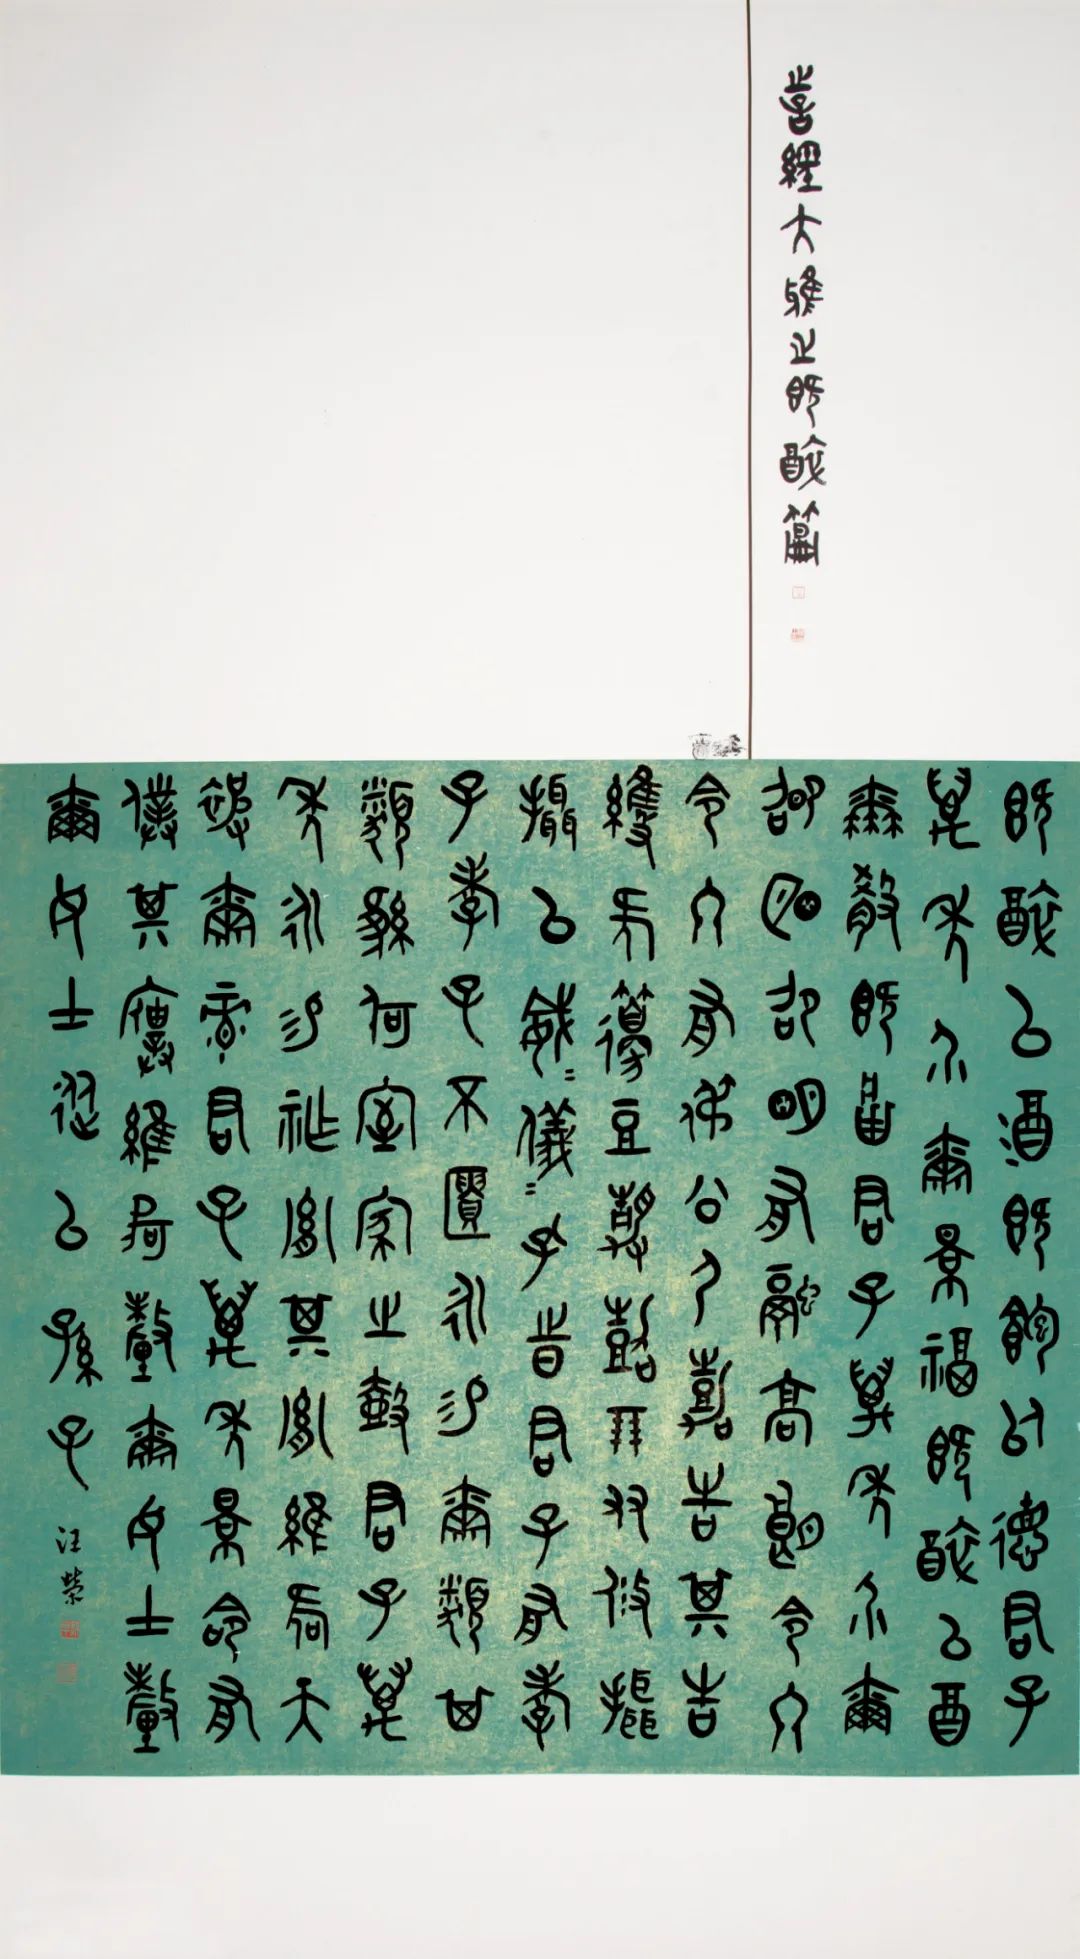 詩經大雅之既醉篇
既醉以酒既飽以德君子
萬年介爾景福既醉以酒
爾殽既將君子萬年介爾
昭明昭明有融高朗令終
令終有俶公尸嘉告其告
維何籩豆靜嘉朋友攸攝
攝以威〻儀〻孔時君子有孝
子孝子不匱永錫爾類其
類維何室家之壼君子萬
年永錫祚胤其胤維何天
被爾祿君子萬年景命有
僕其僕維何釐爾女士釐
爾女士從以孫子
汪榮